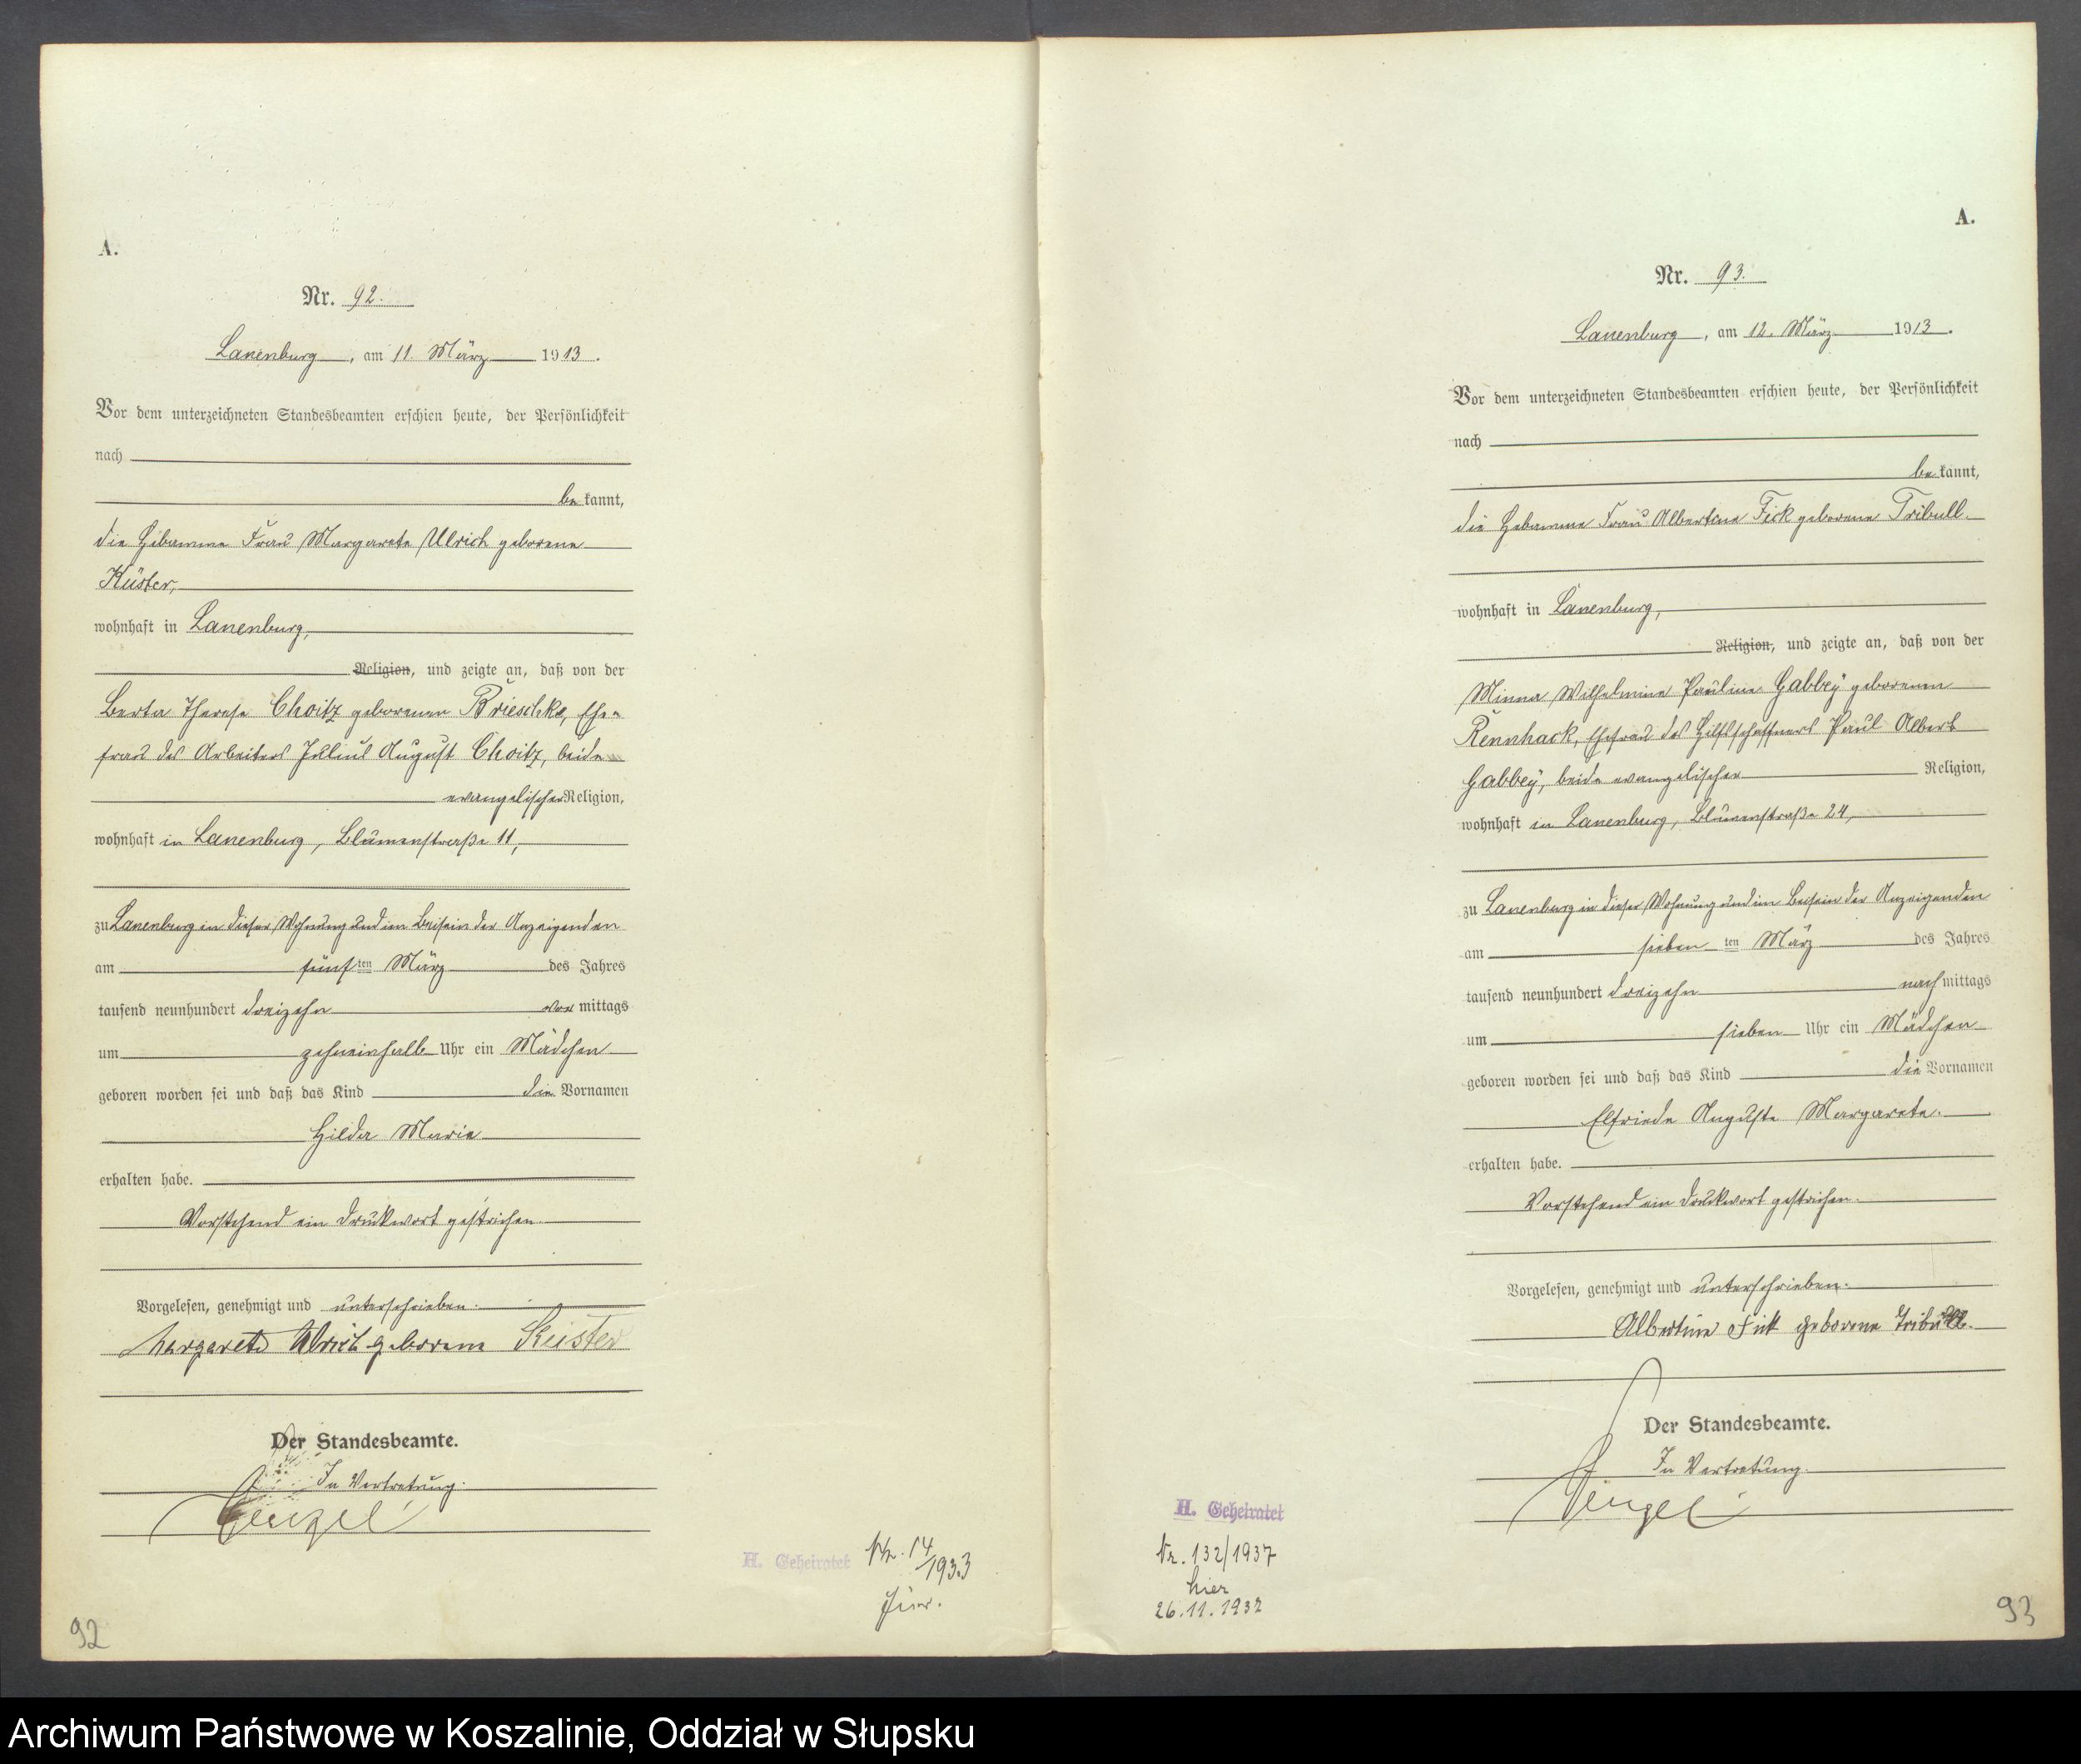 A.
Nr. 92.
Lauenburg, am 11. März 1913.
Vor dem unterzeichneten Standesbeamten erschien heute, der Persönlichkeit
nach
be kannt,
die Hebamme Frau Margarete Ulrich geborene
Küster,
wohnhaft in Lauenburg,
Religion, und zeigte an, daß von der
Berta Therese Choitz geborenen Brieschke, Ehe-
frau des Arbeiters Julius August Choitz, beide
evangelischer Religion,
wohnhaft in Lauenburg, Blumenstraße 11,
zu Lauenburg in dieser Wohnung und im Beisein der Anzeigenden
am fünf ten März des Jahres
tausend neunhundert dreizehn vor mittags
um zehneinhalb Uhr ein Mädchen
geboren worden sei und daß das Kind die Vornamen
Hilda Marie
erhalten habe.
Vorstehend ein Druckwort gestrichen.
Vorgelesen, genehmigt und unterschrieben.
Margarete Ulrich geborene Küster
Der Standesbeamte.
In Vertretung.
H. Geheiratet Nr. 14/1933
92
A.
Nr. 93.
Lauenburg, am 12. März 1913.
Vor dem unterzeichneten Standesbeamten erschien heute, der Persönlichkeit
nach
be kannt,
die Hebamme Frau Albertine Fick geborene Tribull
wohnhaft in Lauenburg,
Religion, und zeigte an, daß von der
Minna Wilhelmine Pauline Gabbey geborenen
Rennhack, Ehefrau des Hilfsschaffners Paul Albert
Gabbey, beide evangelischer Religion,
wohnhaft in Lauenburg, Blumenstraße 24,
zu Lauenburg in dieser Wohnung und im Beisein der Anzeigenden
am sieben ten März des Jahres
tausend neunhundert dreizehn nach mittags
um sieben Uhr ein Mädchen
geboren worden sei und daß das Kind die Vornamen
Elfriede Auguste Margarete.
erhalten habe.
Vorstehend ein Druckwort gestrichen.
Vorgelesen, genehmigt und unterschrieben.
Albertine Fick geborene Tribull.
Der Standesbeamte.
In Vertretung.
H. Geheiratet
Nr. 132/1937
hier
26.11.1937
93
Archiwum Państwowe w Koszalinie, Oddział w Słupsku